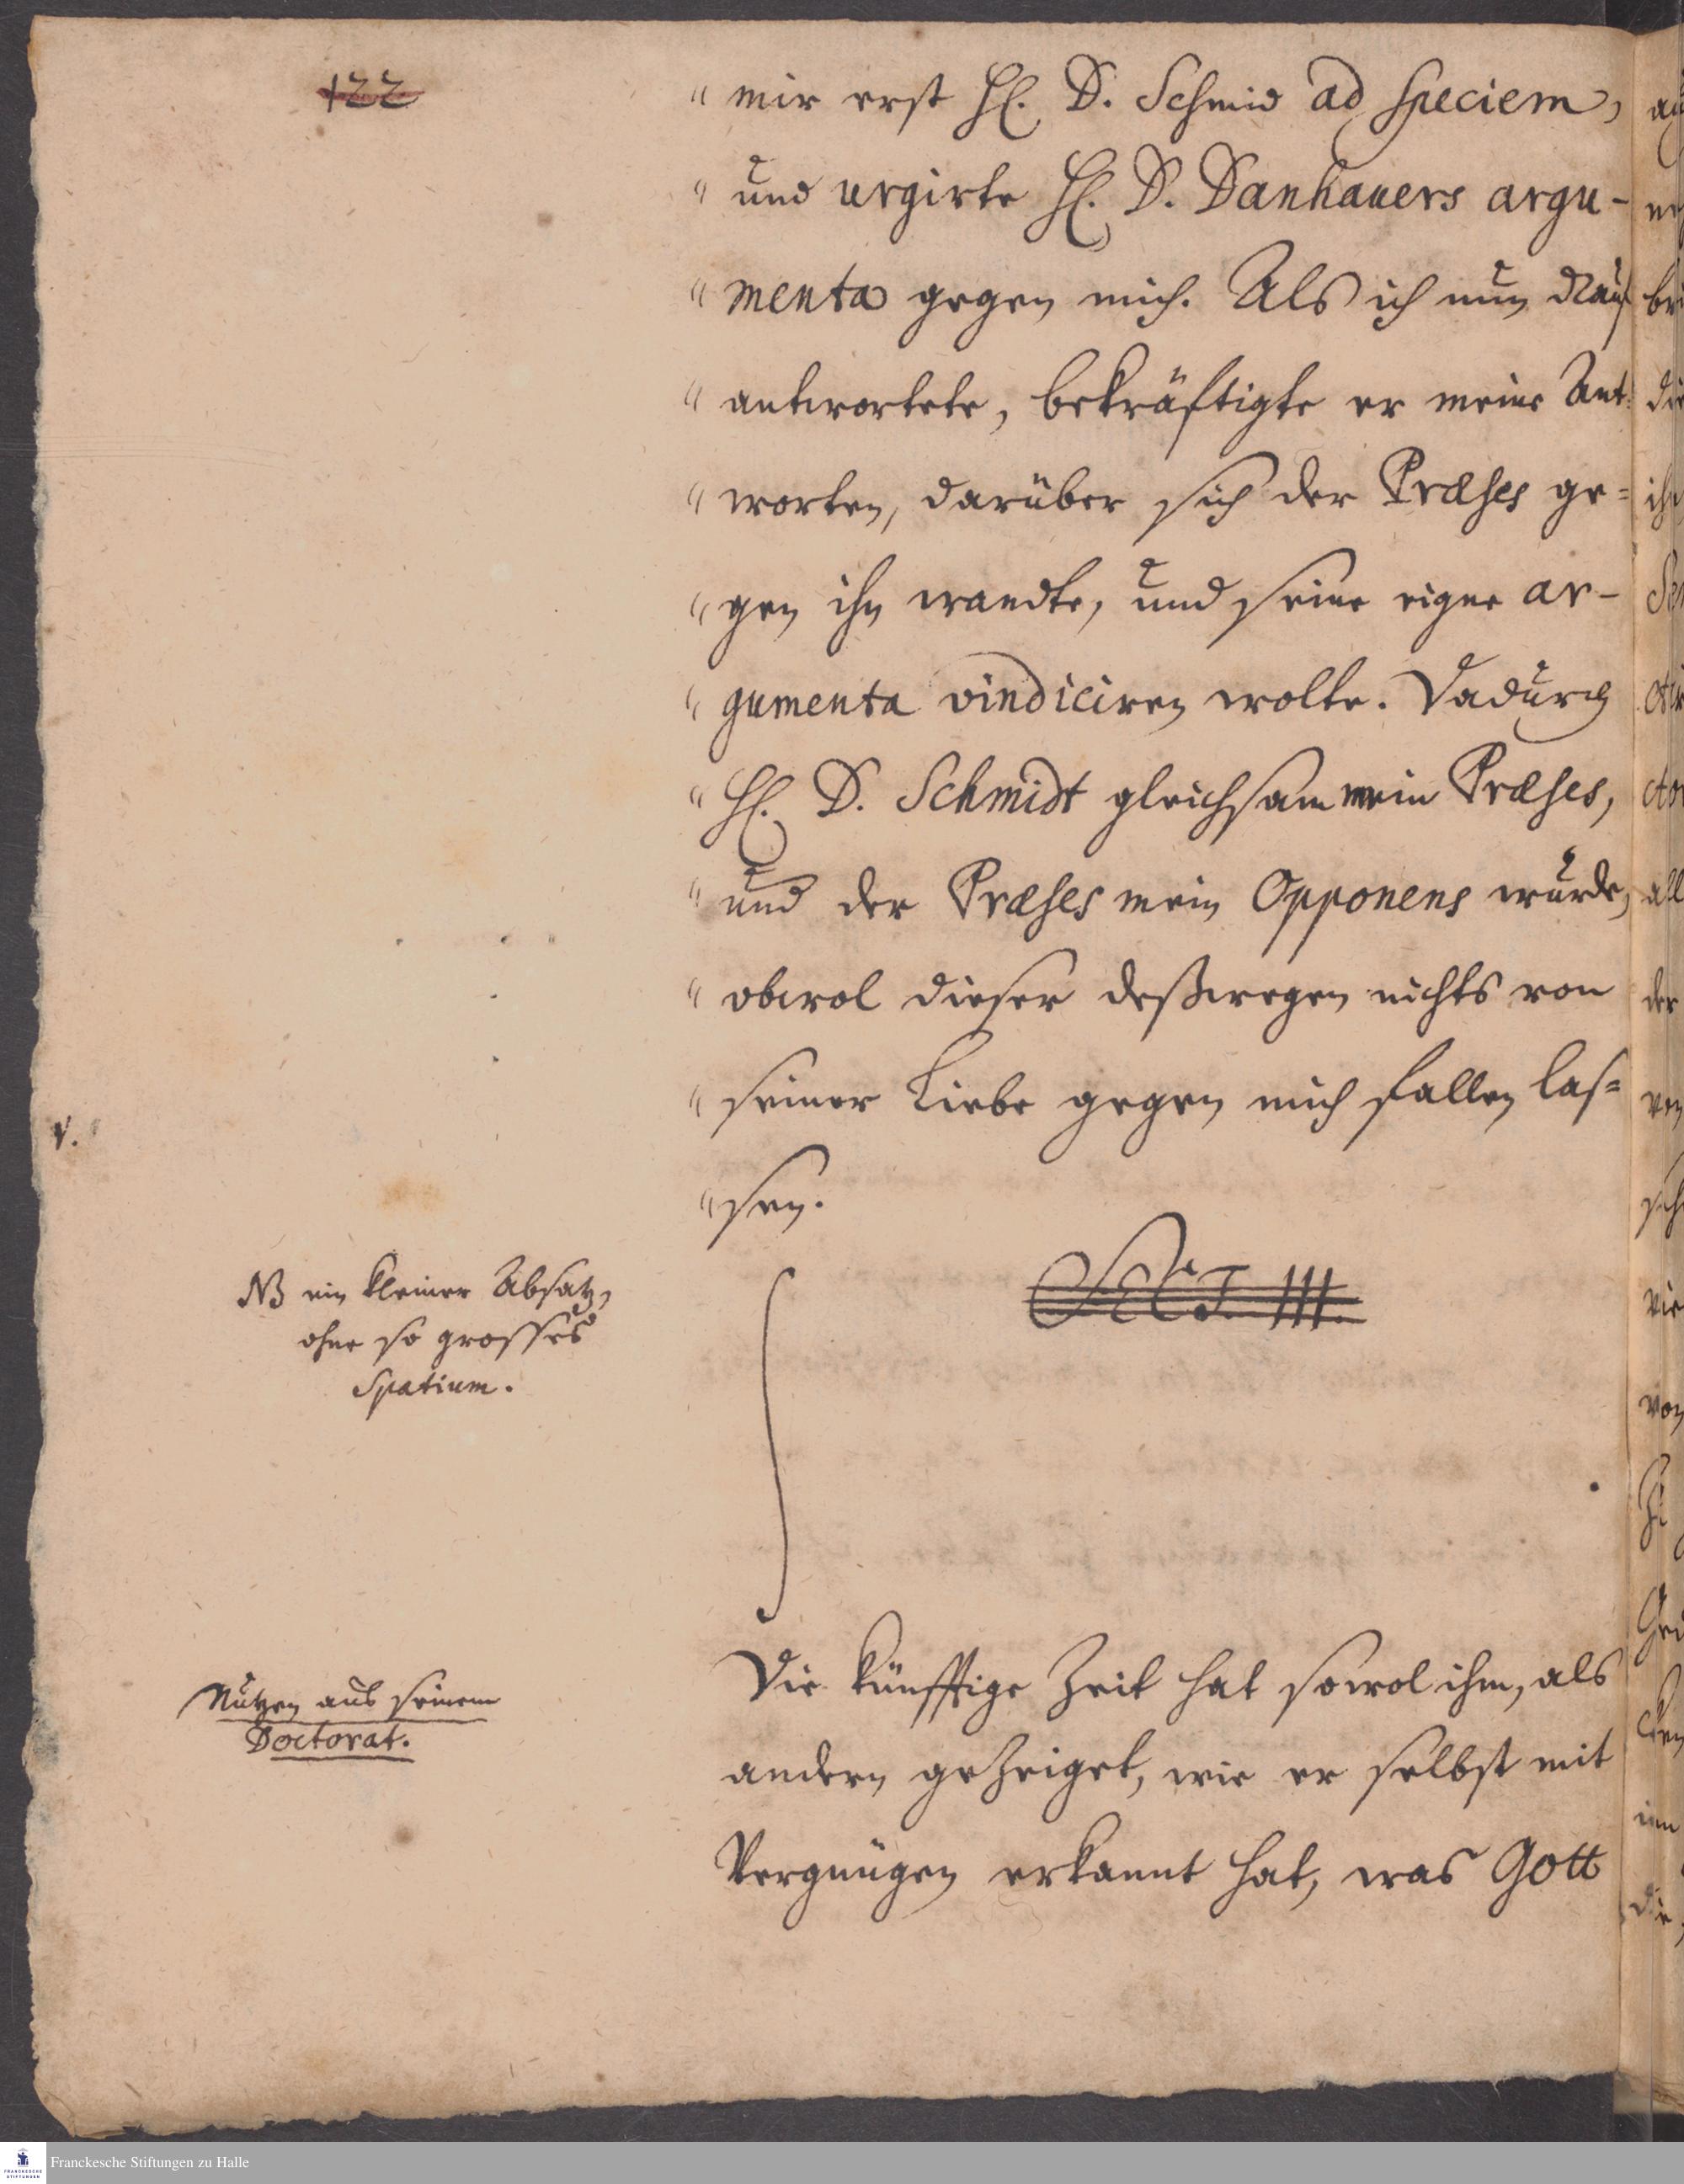 122
" mir erst H. D. Schmid ad speciem,
" und urgirte H. D. Danhauers argu-
" menta gegen mich. Als ich nun drauf
" antwortete, bekräftigte er meine Ant-
" worten, darüber sich der Præses ge=
" gen ihn wandte, und seine eigne ar-
" gumenta vindiciren wolte. Dadurch
" H. D. Schmidt gleichsam mein Præses,
" und der Præses mein Opponens wurde,
" obwol dieser deßwegen nichts von
" seiner Liebe gegen mich fallen las=
" sen.
V.
NB ein kleiner Absatz,
ohne so grosses
Spatium.
SECT. III.
Nutzen aus seinem
Doctorat.
Die künfftige Zeit hat sowol ihm, als
andern gezeiget, wie er selbst mit
Vergnügen erkannt hat, was Gott
Franckesche Stiftungen zu Halle